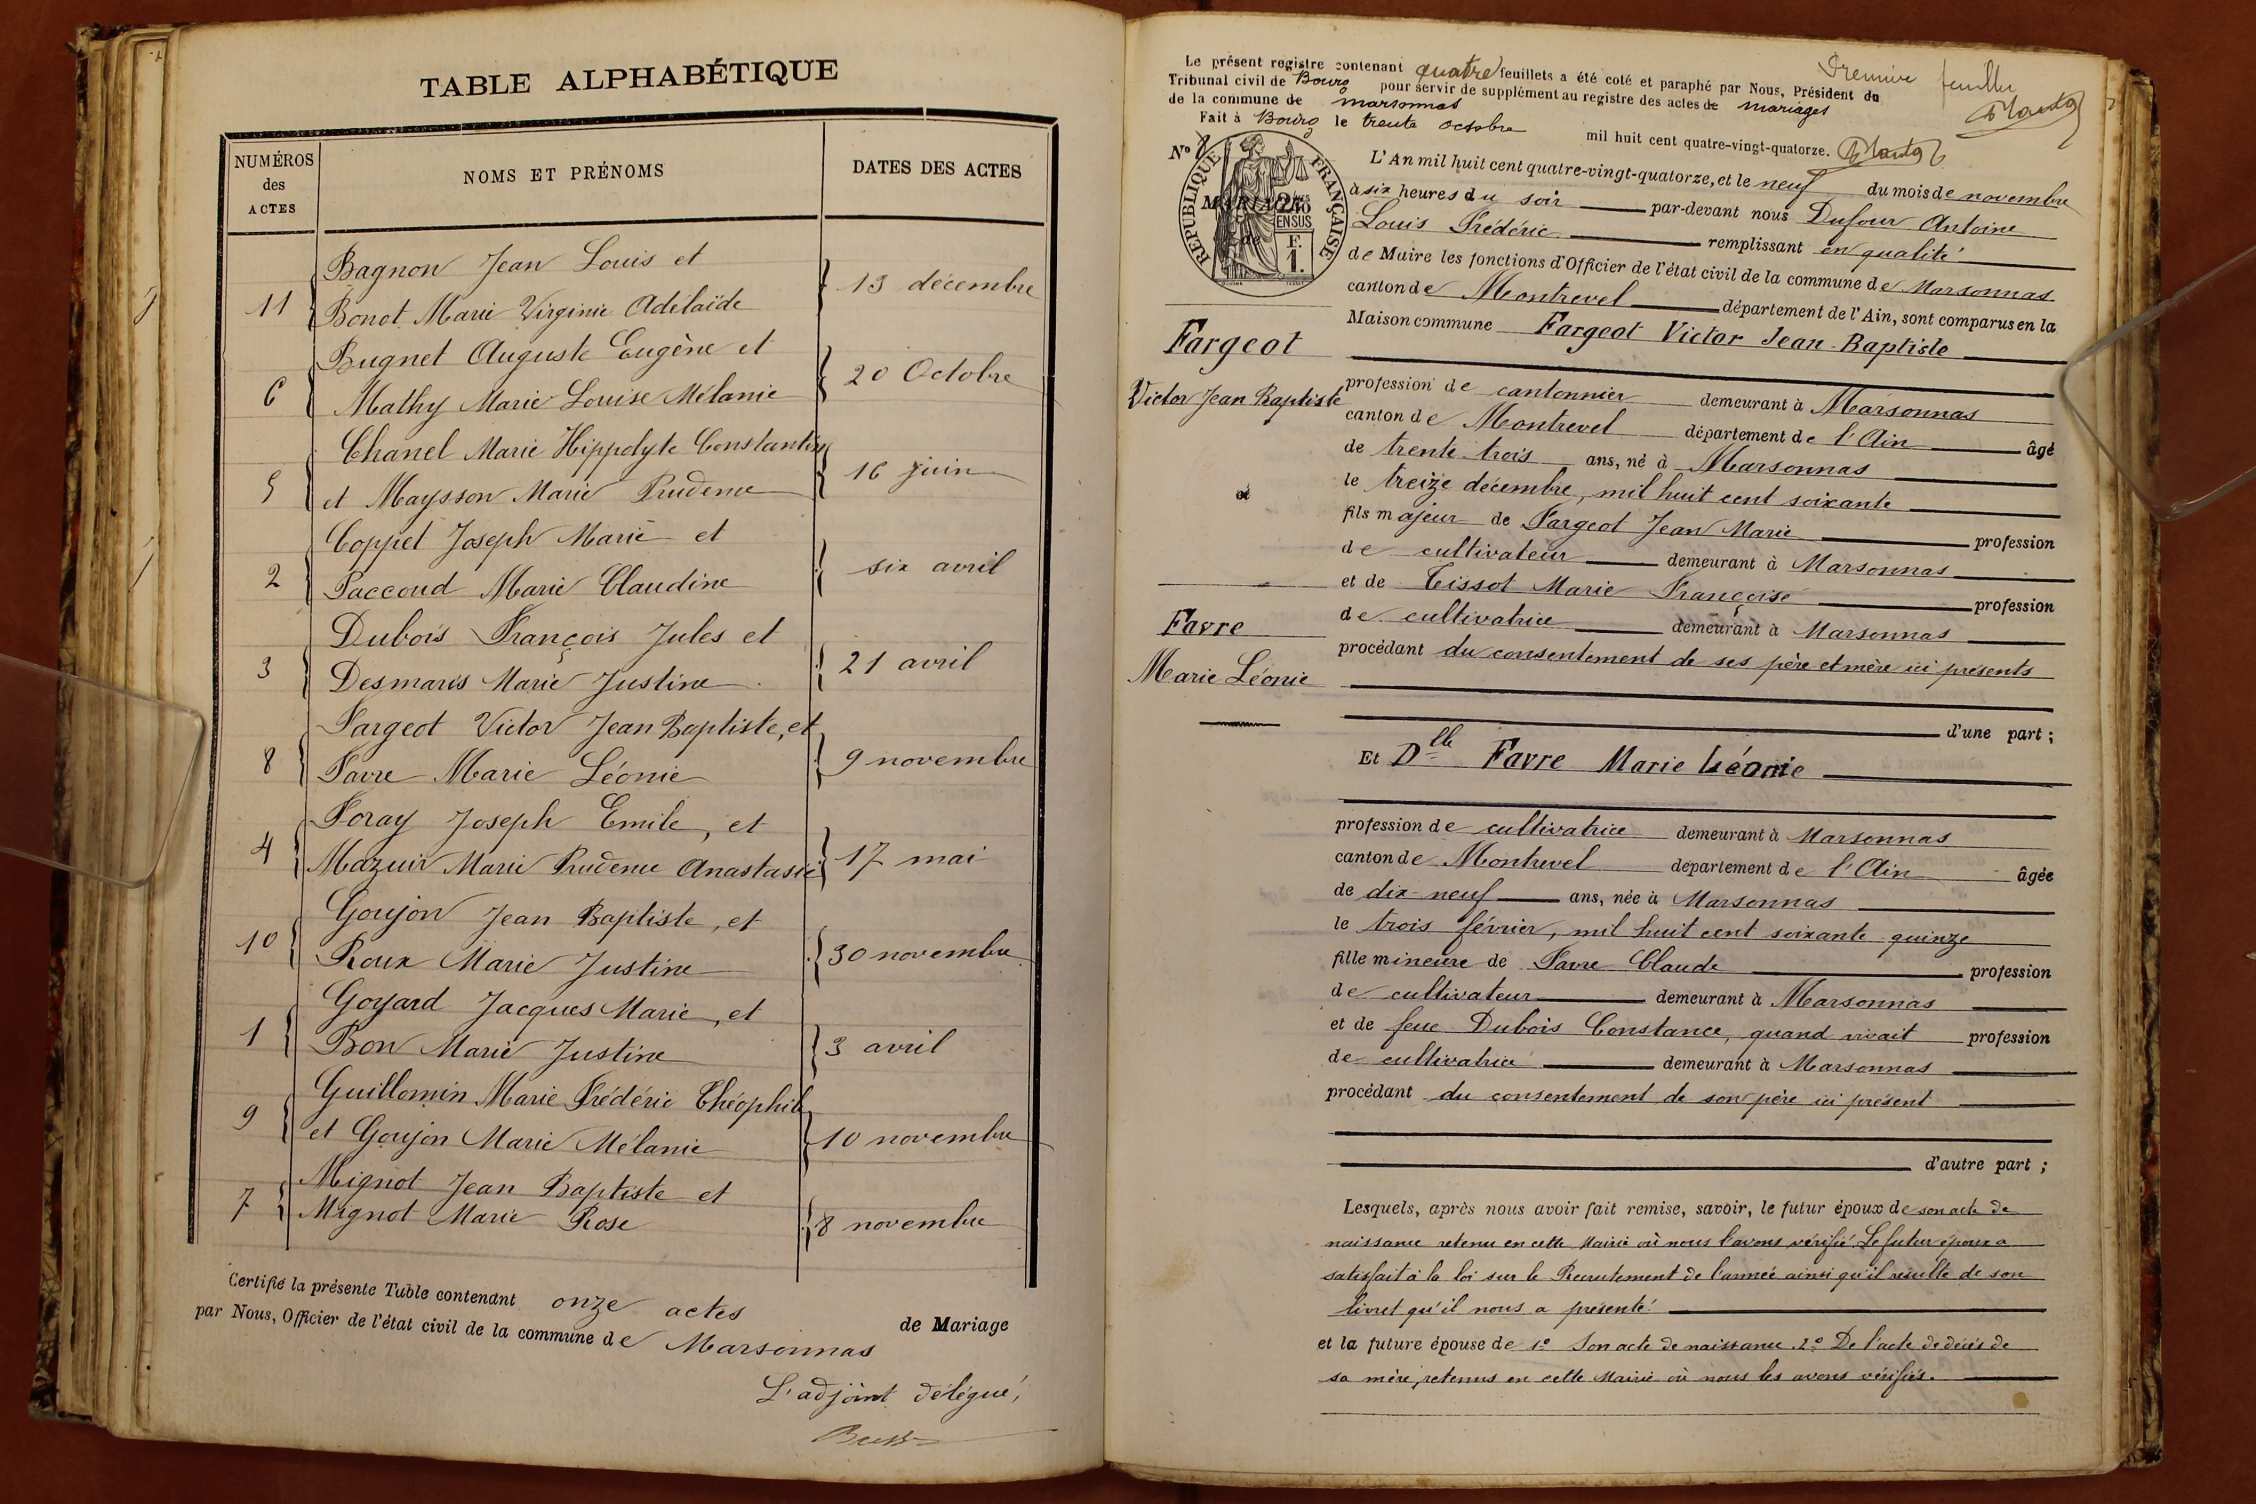 TABLE ALPHABÉTIQUE
NUMÉROS des ACTES
NOMS ET PRÉNOMS
DATES DES ACTES
Bagnon Jean Louis et
11 13 décembre
Bonot Marie Virginie Adélaïde
Bugnet Auguste Eugène et
6 20 Octobre
Mathy Marie Louise Mélanie
Chanel Marie Hippolyte Constantin
5 16 juin
et Maysson Marie Prudence
Coppet Joseph Marie et
2 six avril
Paccoud Marie Claudine
Dubois François Jules et
3 21 avril
Desmaris Marie Justine
Fargeot Victor Jean Baptiste, et
8 9 novembre
Favre Marie Léonie
Foray Joseph Emile, et
4 17 mai
Mazuir Marie Prudence Anastasie
Goujon Jean Baptiste, et
10 30 novembre
Roux Marie Justine
Goyard Jacques Marie, et
1 3 avril
Bon Marie Justine
Guillomin Marie Frédéric Théophile
9 10 novembre
et Goujon Marie Mélanie
Mignot Jean Baptiste et
7 8 novembre
Mignot Marie Rose
Certifié la présente Table contenant onze actes de Mariage
par Nous, Officier de l'état civil de la commune de Marsonnas
L'adjoint délégué,
Le présent registre contenant quatre feuillets a été coté et paraphé par Nous, Président du
Premier feuillet
Tribunal civil de Bourg pour servir de supplément au registre des actes de mariages
de la commune de Marsonnas
Fait à Bourg le trente octobre mil huit cent quatre-vingt-quatorze.
No 8
RÉPUBLIQUE FRANÇAISE
MARIAGE
de
2/10 EN SUS
F. 1.
L'An mil huit cent quatre-vingt-quatorze, et le neuf du mois de novembre
à six heures du soir par-devant nous Dufour Antoine
Louis Frédéric remplissant en qualité
de Maire les fonctions d'Officier de l'état civil de la commune de Marsonnas
canton de Montrevel département de l'Ain, sont comparus en la
Maison commune Fargeot Victor Jean-Baptiste
Fargeot
Victor Jean Baptiste
et
Favre
Marie Léonie
profession de cantonnier demeurant à Marsonnas
canton de Montrevel département de l'Ain âgé
de trente-trois ans, né à Marsonnas
le treize décembre, mil huit cent soixante
fils majeur de Fargeot Jean Marie profession
de cultivateur demeurant à Marsonnas
et de Tissot Marie Françoise profession
de cultivatrice demeurant à Marsonnas
procédant du consentement de ses père et mère ici présents
d'une part ;
Et Dlle Favre Marie Léonie
profession de cultivatrice demeurant à Marsonnas
canton de Montrevel département de l'Ain âgée
de dix-neuf ans, née à Marsonnas
le trois février, mil huit cent soixante quinze
fille mineure de Favre Claude profession
de cultivateur demeurant à Marsonnas
et de feue Dubois Constance, quand vivait profession
de cultivatrice demeurant à Marsonnas
procédant du consentement de son père ici présent
d'autre part ;
Lesquels, après nous avoir fait remise, savoir, le futur époux de son acte de
naissance retenu en cette Mairie où nous l'avons vérifié. Le futur époux a
satisfait à la loi sur le Recrutement de l'armée ainsi qu'il résulte de son
livret qu'il nous a présenté.
et la future épouse de 1° Son acte de naissance. 2° De l'acte de décès de
sa mère, retenus en cette Mairie où nous les avons vérifiés.